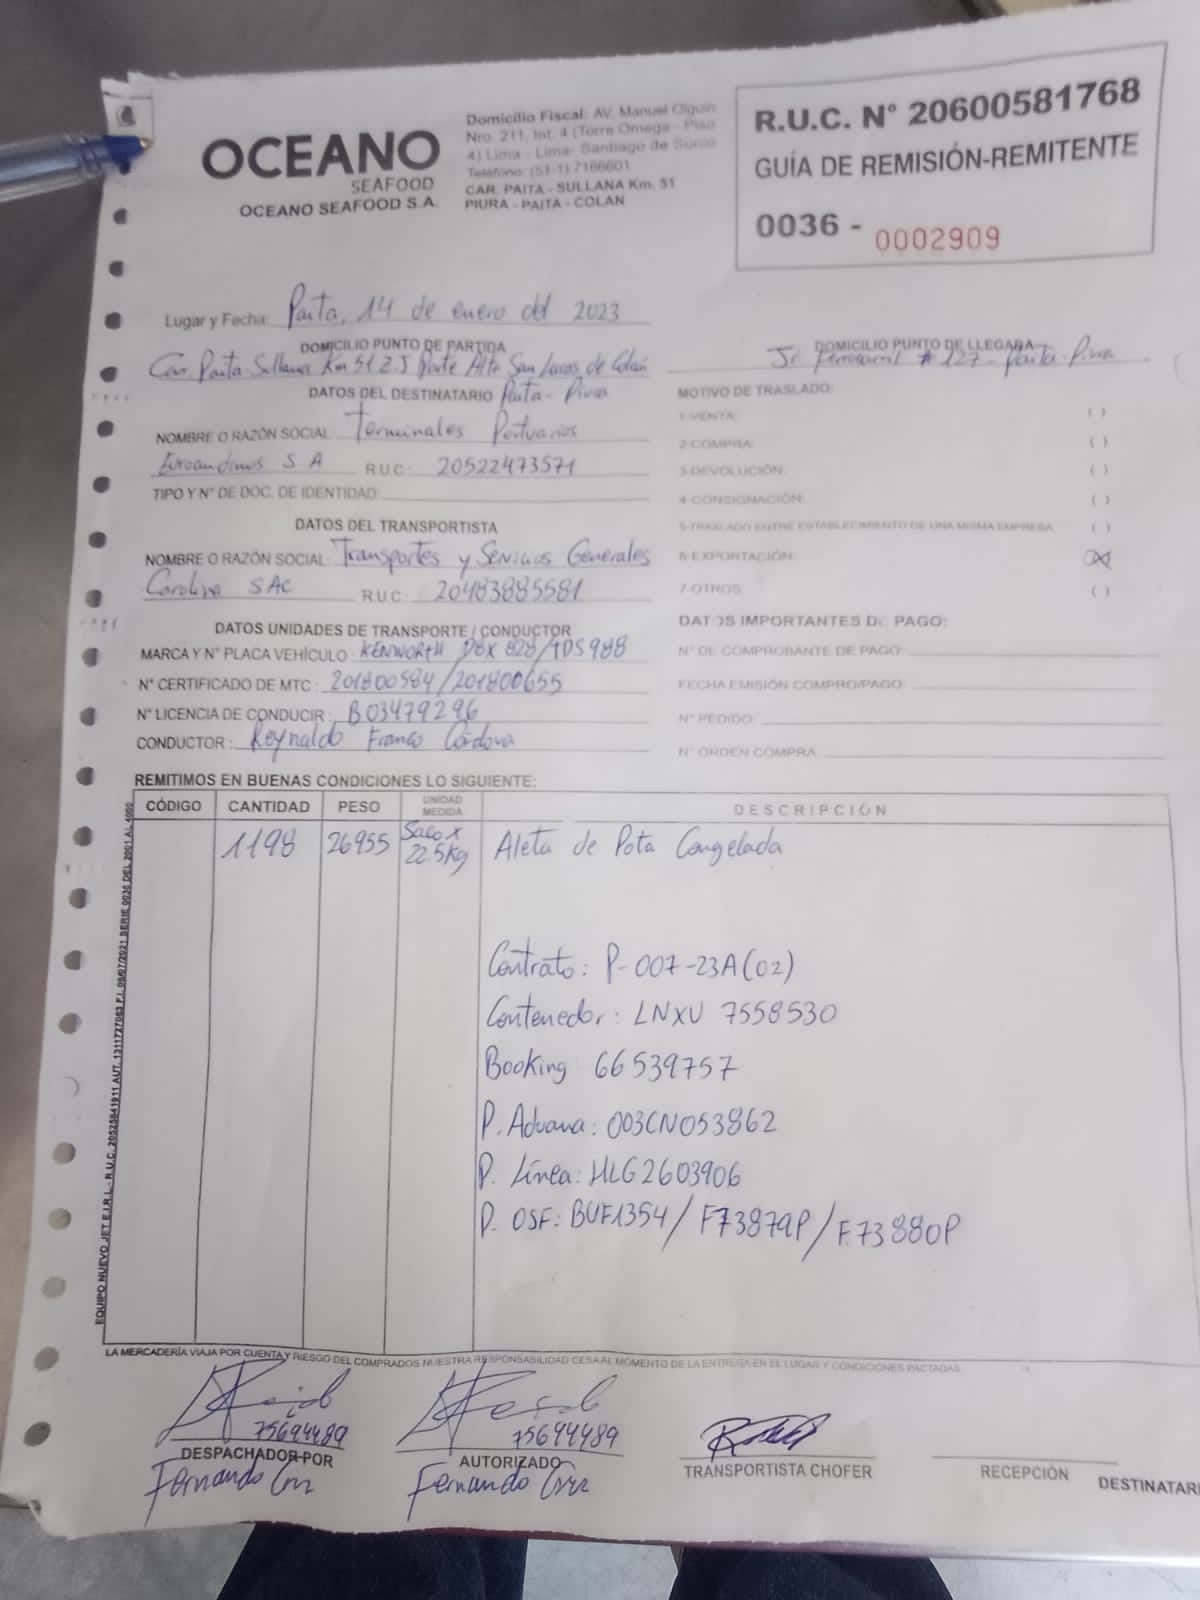 OCEANO
SEAFOOD
OCEANO SEAFOOD S.A.
Domicilio Fiscal: AV. Manuel Olguin
Nro. 211, Int. 4 (Torre Omega - Piso
4) Lima - Lima- Santiago de Surco
Teléfono: (51-1) 7166601
CAR. PAITA - SULLANA Km. 51
PIURA - PAITA - COLAN
R.U.C. N° 20600581768
GUÍA DE REMISIÓN-REMITENTE
0036 - 0002909
Lugar y Fecha: Paita, 14 de enero del 2023
DOMICILIO PUNTO DE PARTIDA
Car. Paita Sullana Km 51 Parte Alta San Lucas de Colán
Paita - Piura
DOMICILIO PUNTO DE LLEGADA
Jr. Ferrocarril # 127 - Paita Piura
DATOS DEL DESTINATARIO
NOMBRE O RAZÓN SOCIAL Terminales Portuarios
Euroandinos S A R.U.C: 20522473571
TIPO Y N° DE DOC. DE IDENTIDAD:
DATOS DEL TRANSPORTISTA
NOMBRE O RAZÓN SOCIAL: Transportes y Servicios Generales
Carolina SAC R.U.C: 20483885581
DATOS UNIDADES DE TRANSPORTE / CONDUCTOR
MARCA Y N° PLACA VEHÍCULO: KENWORTH 828/TDS988
N° CERTIFICADO DE MTC: 201800584/201800655
N° LICENCIA DE CONDUCIR: B03479296
CONDUCTOR: Reynaldo Franco Córdova
MOTIVO DE TRASLADO:
1-VENTA: ( )
2-COMPRA: ( )
3-DEVOLUCIÓN: ( )
4-CONSIGNACIÓN: ( )
5-TRASLADO ENTRE ESTABLECIMIENTO DE UNA MISMA EMPRESA ( )
6-EXPORTACIÓN: (X)
7-OTROS: ( )
DATOS IMPORTANTES DE PAGO:
N° DE COMPROBANTE DE PAGO:
FECHA EMISIÓN COMPRO/PAGO:
N° PEDIDO:
N° ORDEN COMPRA:
REMITIMOS EN BUENAS CONDICIONES LO SIGUIENTE:
CÓDIGO CANTIDAD PESO UNIDAD MEDIDA DESCRIPCIÓN
1198 26955 Saco x 22.5Kg Aleta de Pota Congelada
Contrato: P-007-23A(02)
Contenedor: LNXU 7558530
Booking 66539757
P. Aduana: 003CN053862
P. Línea: HLG2603906
P. OSF: BUF1354 / F73879P / F.73880P
EQUIPO NUEVO JET E.I.R.L - R.U.C. 20525841911 AUT. 1311727063 F.I. 09/07/2021 SERIE 0036 DEL 2001 AL 4000
LA MERCADERÍA VIAJA POR CUENTA Y RIESGO DEL COMPRADOS NUESTRA RESPONSABILIDAD CESA AL MOMENTO DE LA ENTREGA EN EL LUGAR Y CONDICIONES PACTADAS
75694489
DESPACHADOR POR
Fernando Cruz
75694489
AUTORIZADO
Fernando Cruz
TRANSPORTISTA CHOFER
RECEPCIÓN
DESTINATARI